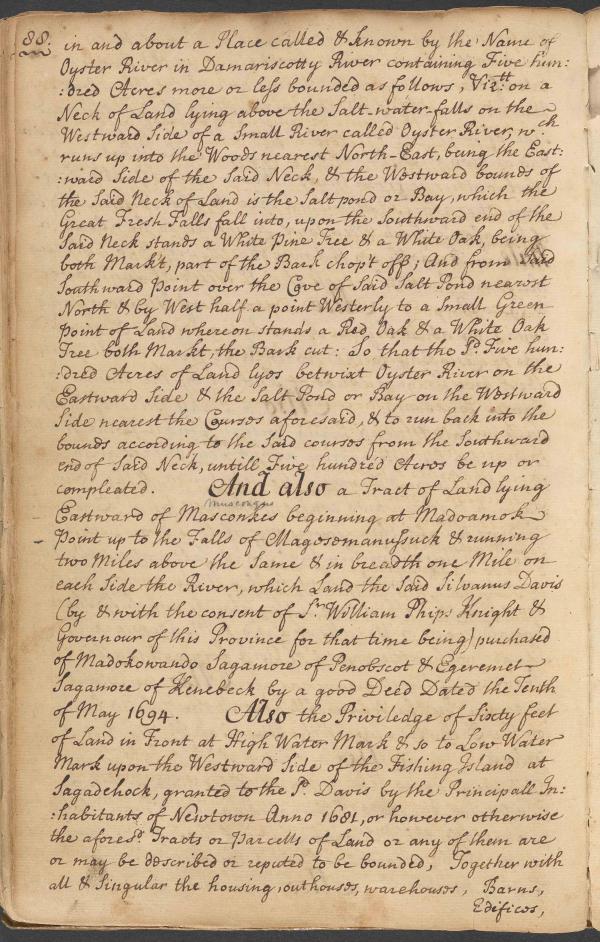 88.
in and about a Place called & known by the Name of
Oyster River in Damariscotty River containing Five hun:
:dred Acres more or less bounded as follows, Vizt: on a
Neck of Land lying above the Salt-water-falls on the
Westward Side of a Small River called Oyster River, wch
runs up into the Woods nearest North-East, being the East:
:ward Side of the Said Neck, & the Westward bounds of
the Said Neck of Land is the Salt pond or Bay, which the
Great Fresh Falls fall into, upon the Southward end of the
Said Neck stands a White Pine Tree & a White Oak, being
both Markt, part of the Bark chop't off; And from Said
Southward Point over the Cove of Said Salt Pond nearest
North & by West half a point Westerly to a Small Green
point of Land whereon stands a Red Oak & a White Oak
Tree both Markt, the Bark cut: So that the Sd. Five hun:
:dred Acres of Land lyes betwixt Oyster River on the
Eastward Side & the Salt Pond or Bay on the Westward
Side nearest the Courses aforesaid, & to run back into the
bounds according to the Said courses from the Southward
end of Said Neck, untill Five hundred Acres be up or
compleated. And also a Tract of Land lying
Muscongus
Eastward of Masconkes beginning at Madoamok
Point up to the Falls of Magesemanussuck & running
two Miles above the Same & in breadth one Mile on
each Side the River, which Land the Said Silvanus Davis
(by & with the consent of Sr. William Phips Knight &
Governour of this Province for that time being) purchased
of Madokowando Sagamore of Penobscot & Egeremet
Sagamore of Kenebeck by a good Deed Dated the Tenth
of May 1694. Also the Priviledge of Sixty feet
of Land in Front at High Water Mark & so to Low Water
Mark upon the Westward Side of the Fishing Island at
Sagadehock, granted to the Sd. Davis by the Principall In:
:habitants of Newtown Anno 1681, or however otherwise
the aforesd. Tracts or Parcells of Land or any of them are
or may be described or reputed to be bounded, Together with
all & Singular the housing, outhouses, warehouses, Barns,
Edifices,